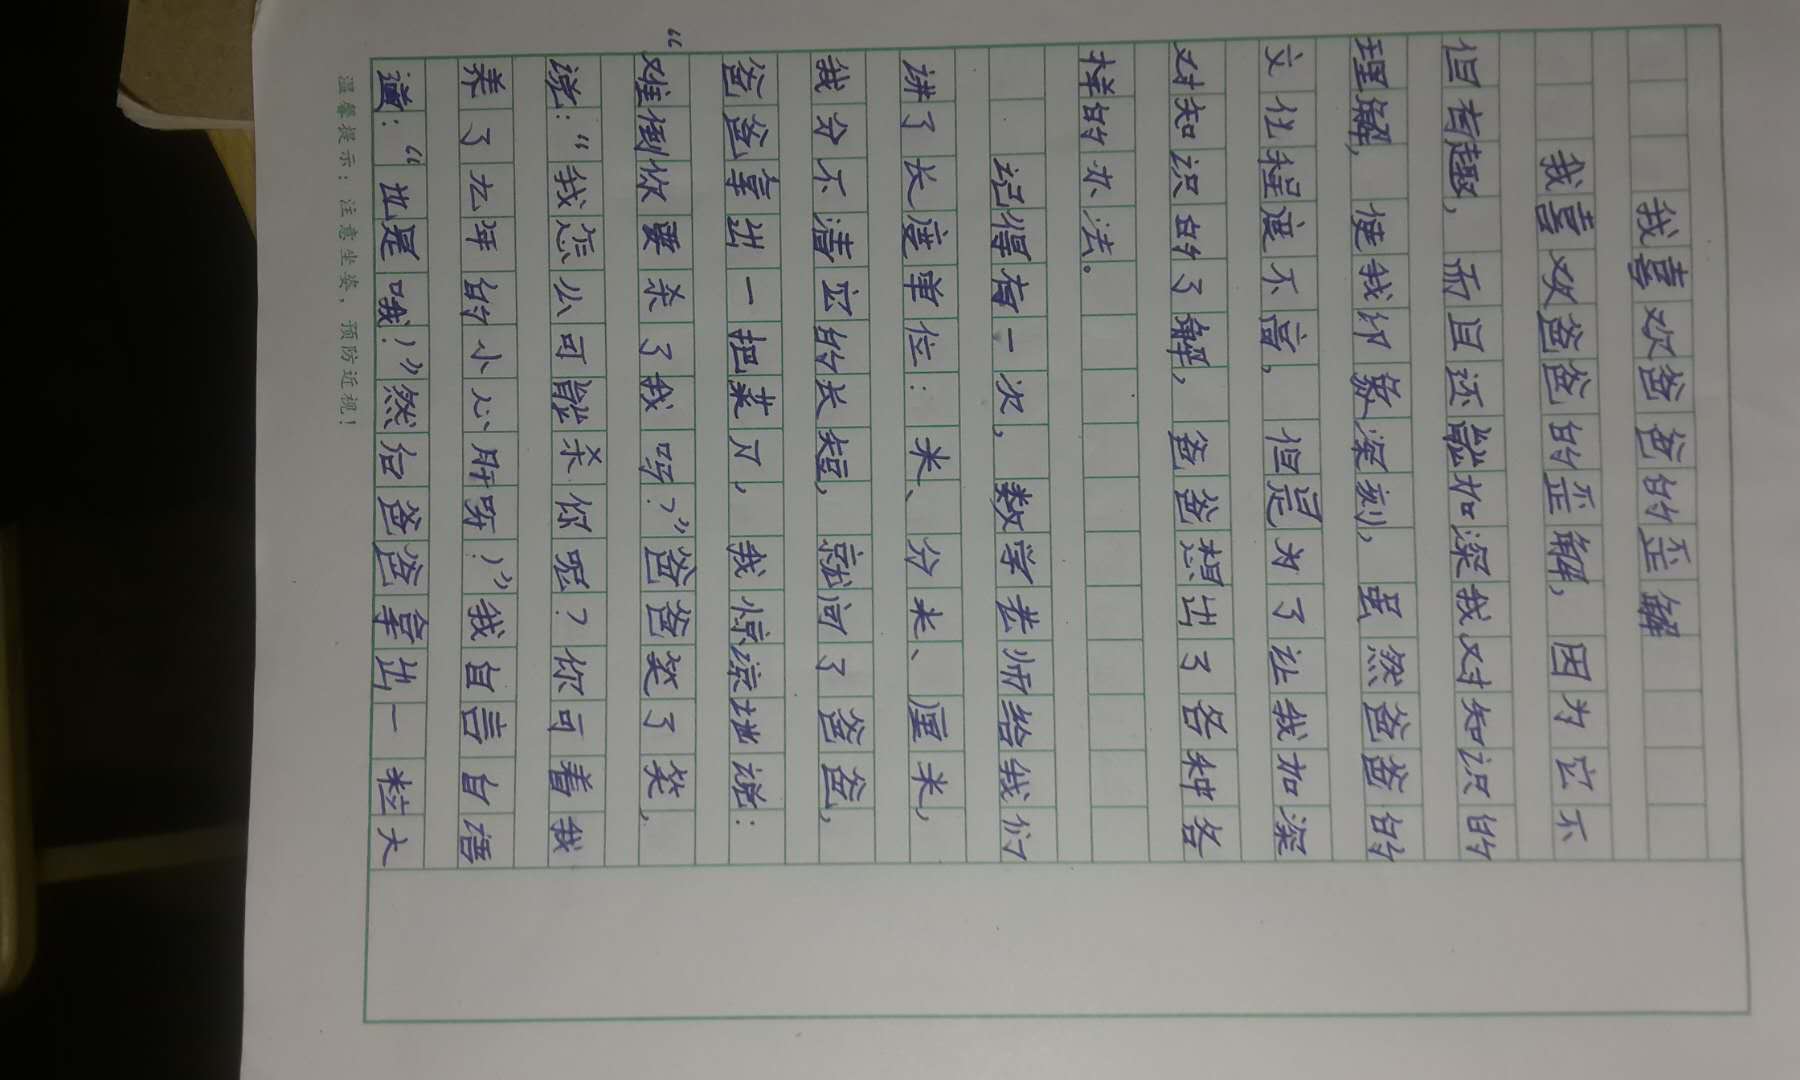 我喜欢爸爸的歪解
我喜欢爸爸的歪解，因为它不
但有趣，而且还能加深我对知识的
理解，使我印象深刻，虽然爸爸的
文化程度不高，但是为了让我加深
对知识的了解，爸爸想出了各种各
样的办法。
记得有一次，数学老师给我们
讲了长度单位：米、分米、厘米，
我分不清它的长短，就问了爸爸，
爸爸拿出一把菜刀，我惊讶地说：
“难倒你要杀了我吗？”爸爸笑了笑，
说：“我怎么可能杀你呢？你可看我
养了九年的小心肝呀！”我自言自语
道：“也是哦！”然后爸爸拿出一粒大
温馨提示：注意坐姿，预防近视！